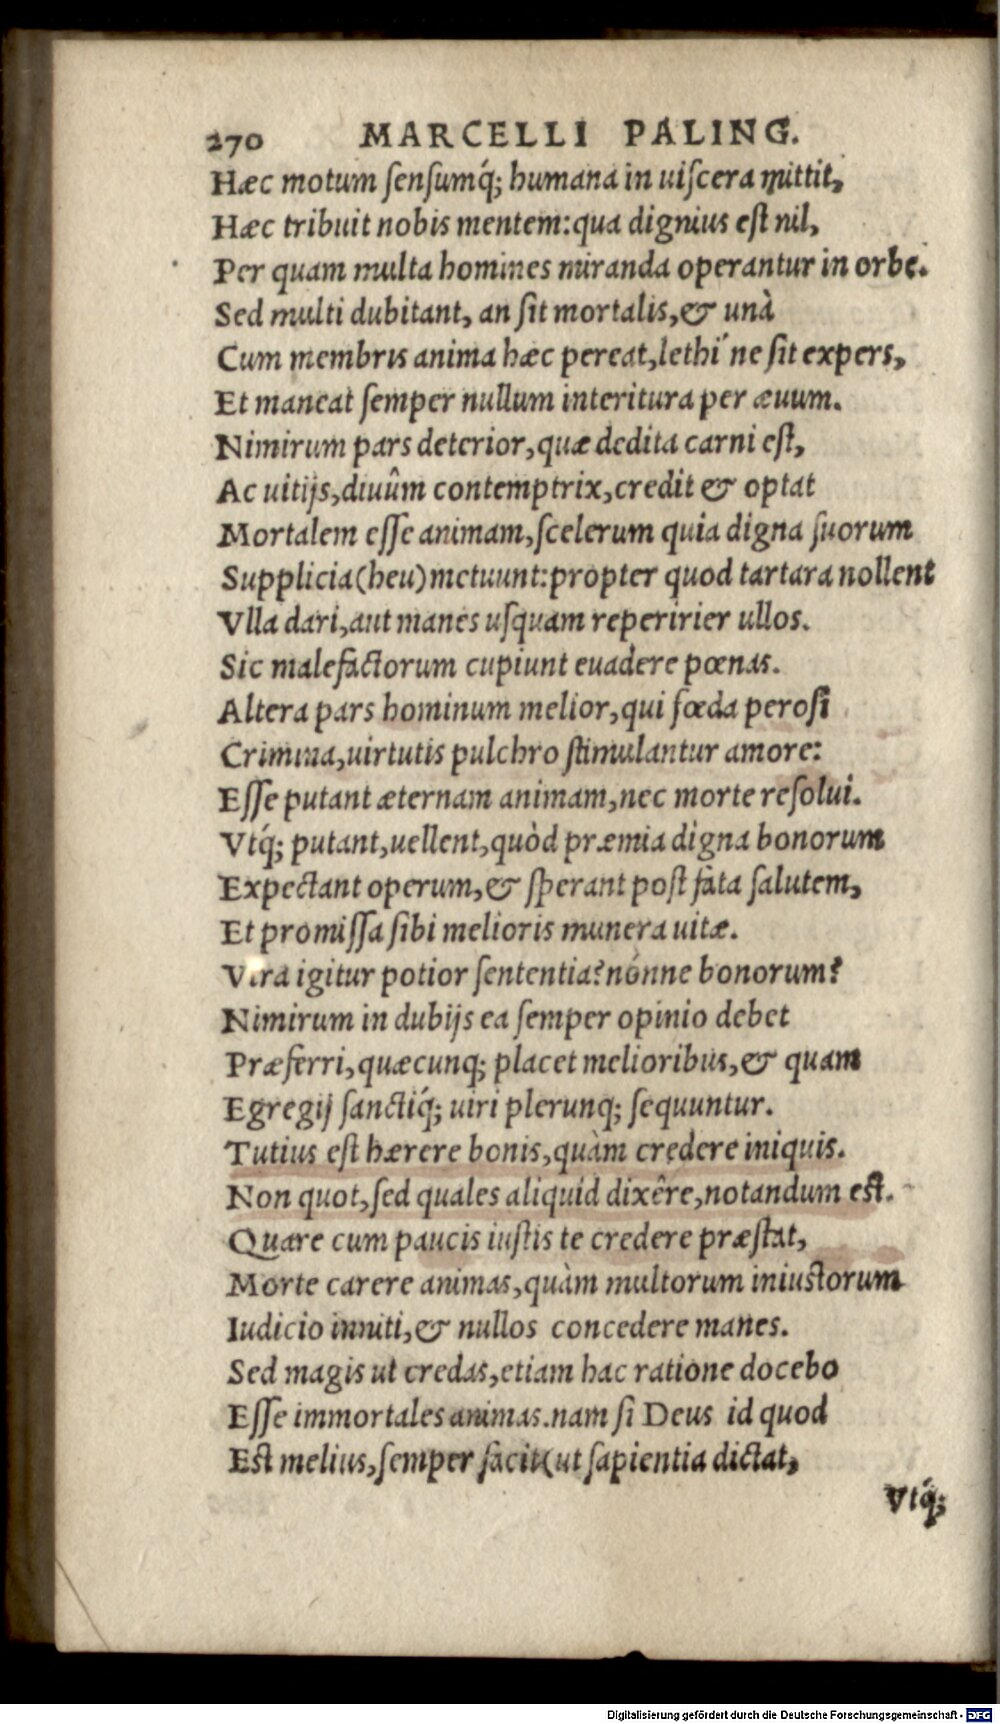 270 MARCELLI PALING.
Hæc motum ſenſumq́; humana in uiſcera mittit,
Hæc tribuit nobis mentem: qua dignius eſt nil,
Per quam multa homines miranda operantur in orbe.
Sed multi dubitant, an ſit mortalis, & unà
Cum membris anima hæc pereat, lethi ́ne ſit expers,
Et maneat ſemper nullum interitura per æuum.
Nimirum pars deterior, quæ dedita carni eſt,
Ac uitijs, diuûm contemptrix, credit & optat
Mortalem eſſe animam, ſcelerum quia digna ſuorum
Supplicia (heu) metuunt: propter quod tartara nollent
Vlla dari, aut manes uſquam reperirier ullos.
Sic malefactorum cupiunt euadere pœnas.
Altera pars hominum melior, qui fœda peroſi
Crimina, uirtutis pulchro ſtimulantur amore:
Eſſe putant æternam animam, nec morte reſolui.
Vtq́; putant, uellent, quòd præmia digna bonorum
Expectant operum, & ſperant poſt fata ſalutem,
Et promiſſa ſibi melioris munera uitæ.
Vtra igitur potior ſententia? nónne bonorum?
Nimirum in dubijs ea ſemper opinio debet
Præferri, quæcunq; placet melioribus, & quam
Egregij ſanctiq́; uiri plerunq; ſequuntur.
Tutius eſt hærere bonis, quàm credere iniquis.
Non quot, ſed quales aliquid dixêre, notandum eſt.
Quare cum paucis iuſtis te credere præſtat,
Morte carere animas, quàm multorum iniuſtorum
Iudicio inniti, & nullos concedere manes.
Sed magis ut credas, etiam hac ratione docebo
Eſſe immortales animas. nam ſi Deus id quod
Eſt melius, ſemper facit (ut ſapientia dictat,
Vtq́;
Digitalisierung gefördert durch die Deutsche Forschungsgemeinschaft - DFG